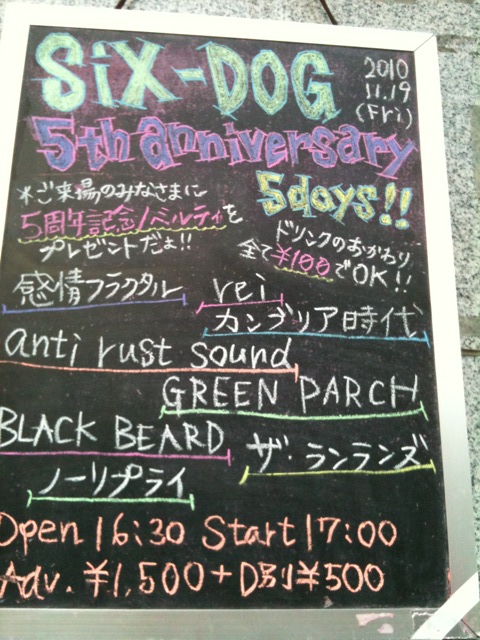 SiX-DOG
2010
11.19
(Fri)
5th anniversary
5days!!
*ご来場のみなさまに
5周年記念ノベルティを
プレゼントだょ!!
ドリンクのおかわり
全て¥100でOK!!
感情フラクタル
rei
カンブリア時代
anti rust sound
GREEN PARCH
BLACK BEARD
ザ・ランランズ
ノーリプライ
Open 16:30 Start 17:00
Adv. ¥1,500+D別¥500